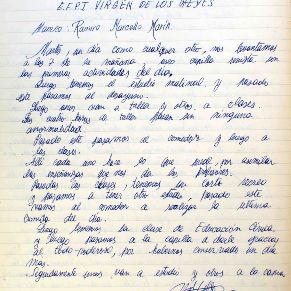 E.F.P.I VIRGEN DE LOS REYES
Alumno: Ramiro Marcello Marin
Martes, un día como cualquier otro, nos levantamos
a las 7 de la mañana
las primeras actividades del día.
Luego tenemos el estudio matinal y pasado
esto pasamos al desayuno.
Luego unos van a taller y otros a clases.
Las cuatro horas de taller pasan sin ninguna
anormalidad.
Pasado este pasamos al comedor y luego a
las clases.
Allí cada uno hace lo que puede, por asimilar
las enseñanzas que nos da los profesores.
Pasadas las clases, tenemos un corto recreo
y pasamos a tener otro estudio, pasado este
vamos al comedor a realizar la última
comida del día.
Luego tenemos la clase de Educación Cívica,
y luego pasamos a la capilla a darle gracias
al todo-poderoso, por habernos conservado un día
mas.
Seguidamente unos van a estudio y otros a la cama.